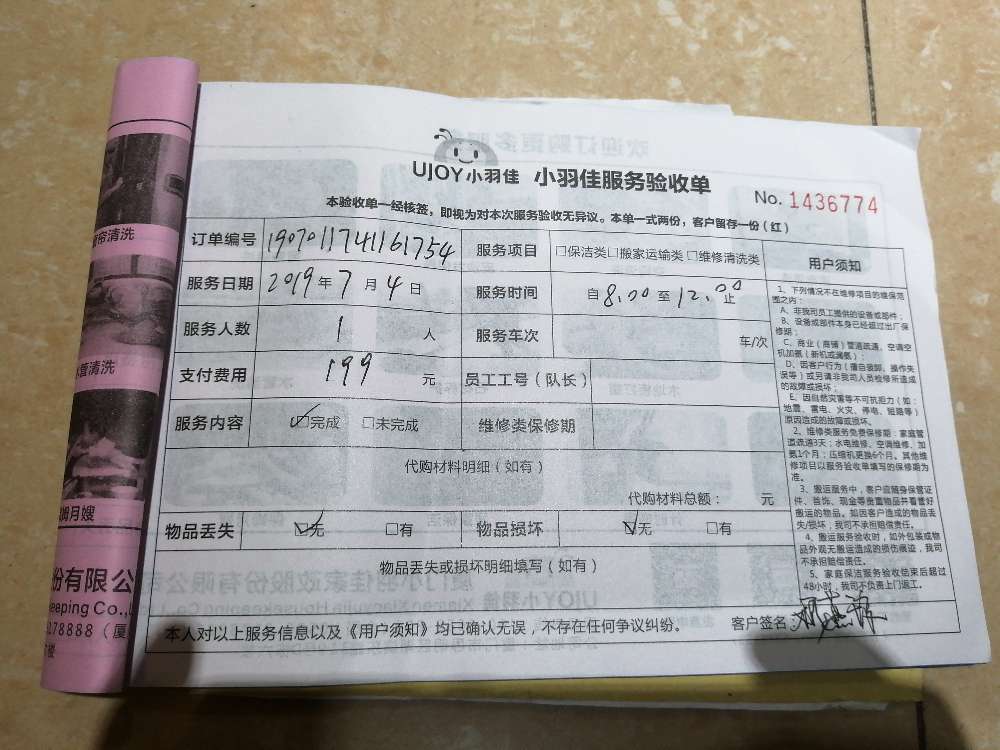 UJOY小羽佳 小羽佳服务验收单
No. 1436774
本验收单一经核签，即视为对本次服务验收无异议。本单一式两份，客户留存一份（红）
订单编号 1907011741161754 服务项目 □保洁类□搬家运输类□维修清洗类
服务日期 2019年7月4日 服务时间 自8.00至12.00止
服务人数 1 人 服务车次 车/次
支付费用 199 元 员工工号（队长）
服务内容 ☑完成 □未完成 维修类保修期
代购材料明细（如有）
代购材料总额： 元
物品丢失 ☑无 □有 物品损坏 ☑无 □有
物品丢失或损坏明细填写（如有）
本人对以上服务信息以及《用户须知》均已确认无误，不存在任何争议纠纷。 客户签名：
用户须知
1、下列情况不在维修项目的维保范
围之内：
A、非我司员工提供的设备或部件；
B、设备或部件本身已经超过出厂保
修期；
C、商业（商铺）管道疏通、空调空
机加氟（新机或漏氟）；
D、因客户行为（擅自装卸、操作失
误等）或另请非我司人员检修所造成
的故障或损坏；
E、因自然灾害等不可抗拒力（如：
地震、雷电、火灾、停电、短路等）
原因造成的故障或损坏。
2、维修类服务免费保修期：家庭管
道疏通3天；水电维修、空调维修、加
氟1个月；压缩机更换6个月。其他维
修项目以服务验收单填写的保修期为
准。
3、搬运服务中，客户应随身保管证
件、首饰、现金等贵重物品并看管好
搬运的物品。如因客户造成的物品丢
失/损坏，我司不承担赔偿责任。
4、搬运服务验收时，如外包装或物
品外观无搬运造成的损伤痕迹，我司
不承担赔偿责任。
5、家庭保洁服务验收结束后超过
48小时，我司不负责上门返工。
窗帘清洗
水管清洗
月嫂
份有限公
eeping Co.,L
278888（厦